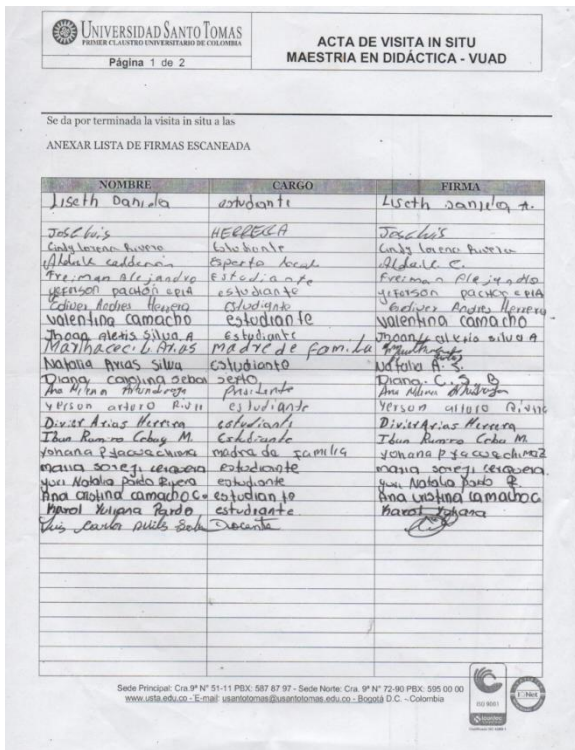 UNIVERSIDAD SANTO TOMAS
PRIMER CLAUSTRO UNIVERSITARIO DE COLOMBIA
Página 1 de 2
ACTA DE VISITA IN SITU
MAESTRIA EN DIDÁCTICA - VUAD
Se da por terminada la visita in situ a las
ANEXAR LISTA DE FIRMAS ESCANEADA
NOMBRE CARGO FIRMA
Liseth Daniela estudiante Liseth Daniela A.
Jose Luis HERRERA Jose Luis
Cindy Lorena Rivera Estudiante Cindy Lorena Rivera
Calderón Experto local C.
Freiman Alejandro Estudiante Freiman Alejandro
Yefferson pachon estudiante Yeferson pachon
Ediver Andres Herrera estudiante Ediver Andres Herrera
Valentina camacho estudiante valentina camacho
Jhoan Alexis Silva A Estudiante Jhoan alexis silva A
Arias madre de familia
Natalia Arias Silva estudiante Natalia A. S.
Diana carolina Diana. C. S. B
Ana Milena Presidente Ana Milena
yerson arturo estudiante Yerson arturo
Divier Arias Herrera estudiante Divier Arias Herrera
Iban Ramiro M. Estudiante Iban Ramiro M
yohana madra de familia yohana
maria estudiante maria
yuri Natalia Pardo Rivera estudiante yuri Natalia Pardo R.
Ana cristina camacho c. estudiante Ana cristina camacho c
Karol Yuliana Pardo estudiante Karol Yohana
Luis Carlos Docente
Sede Principal: Cra.9ª N° 51-11 PBX: 587 87 97 - Sede Norte: Cra. 9ª N° 72-90 PBX: 595 00 00
www.usta.edu.co - E-mail: usantotomas@usantotomas.edu.co - Bogotá D.C. - Colombia
ISO 9001
icontec
IQNet